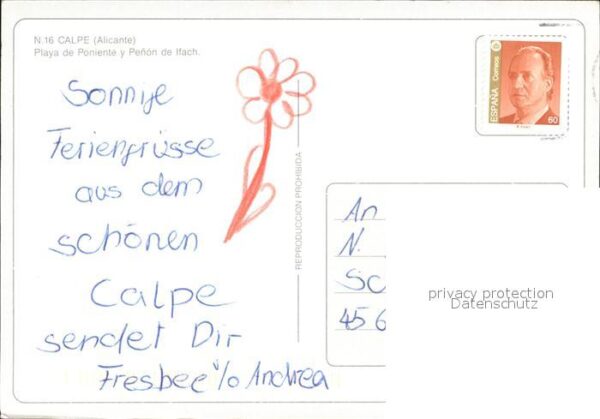 N.16 CALPE (Alicante)
Playa de Poniente y Peñón de Ifach.
Sonnige
Feriengrüsse
aus dem
schönen
Calpe
sendet Dir
Fresbee % Andrea
REPRODUCCION PROHIBIDA
ESPAÑA
Correos
60
An
N.
Sc
456
privacy protection
Datenschutz